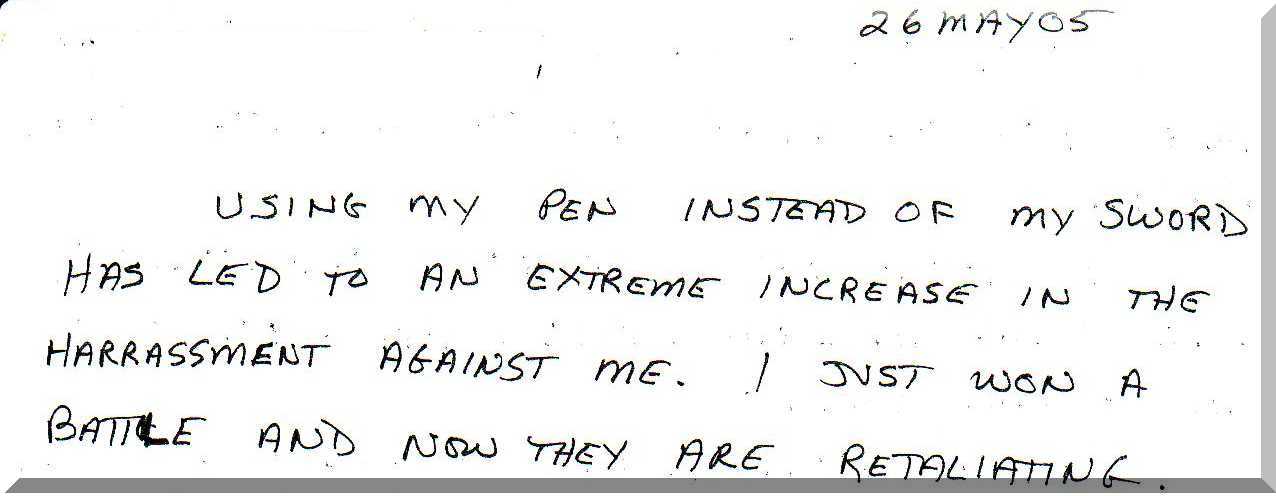 26 MAY 05
USING MY PEN INSTEAD OF MY SWORD
HAS LED TO AN EXTREME INCREASE IN THE
HARRASSMENT AGAINST ME. I JUST WON A
BATTLE AND NOW THEY ARE RETALIATING.